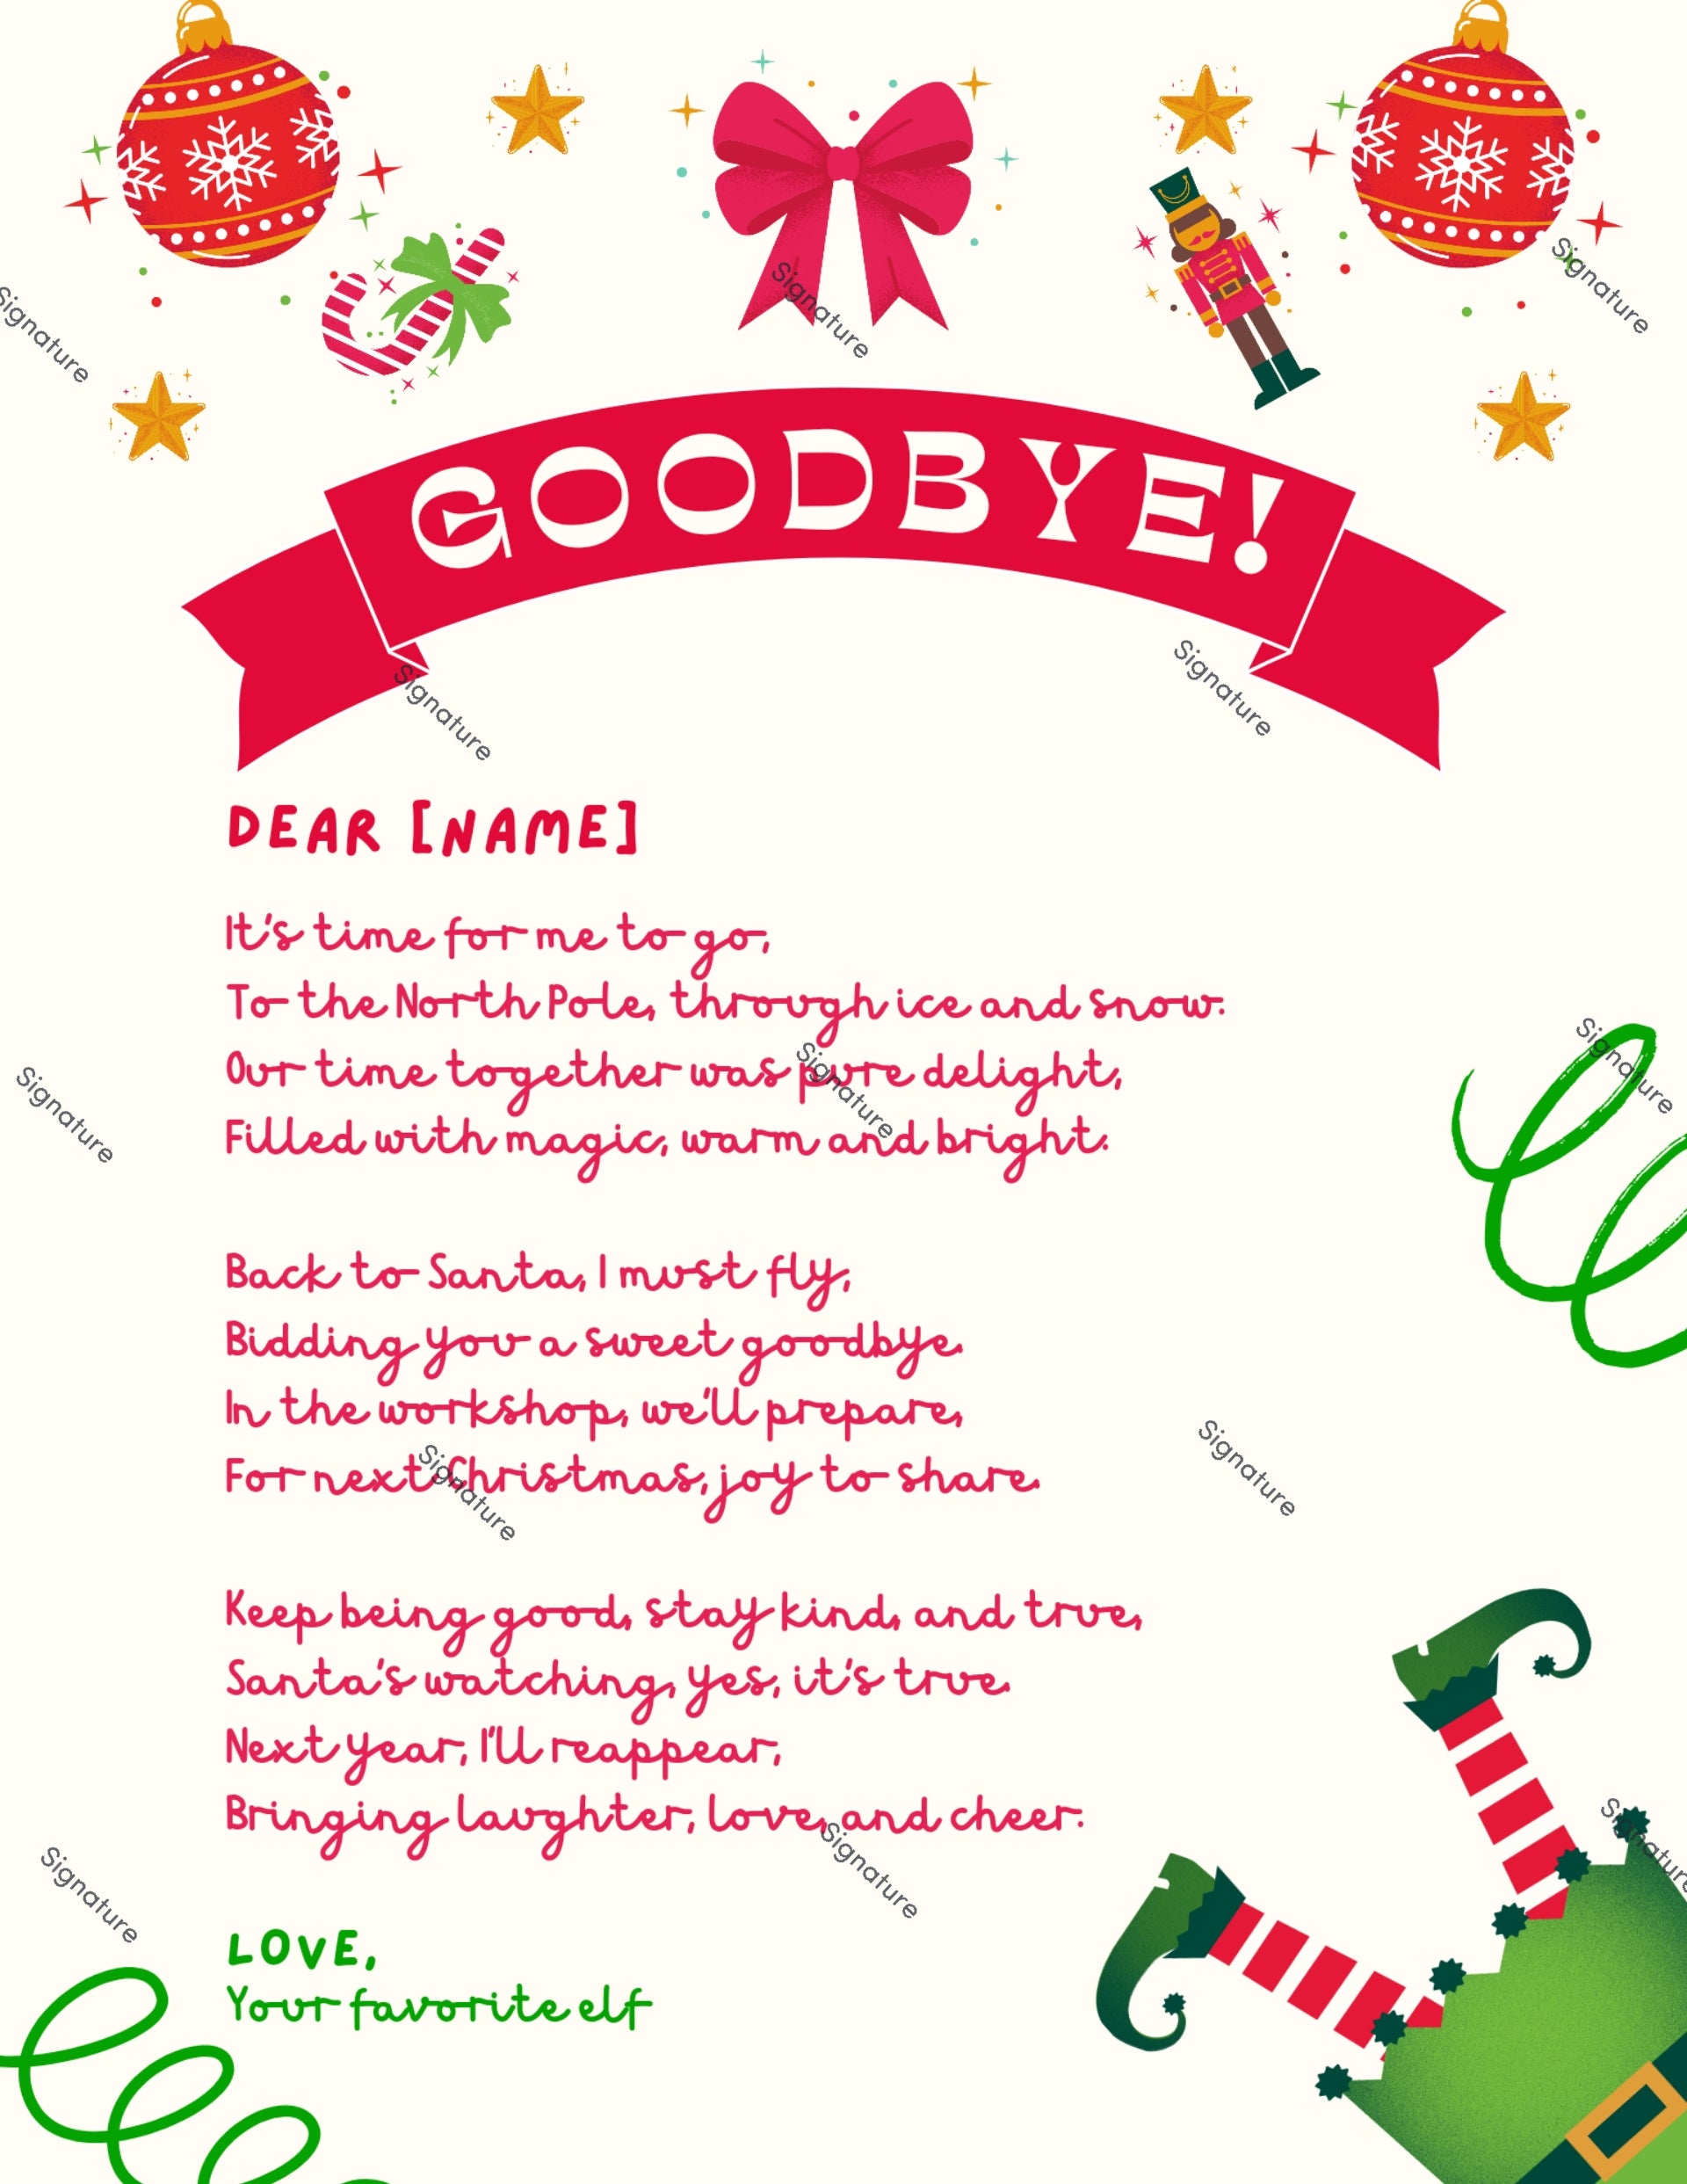 GOODBYE!
DEAR [NAME]
It's time for me to go,
To the North Pole, through ice and snow.
Our time together was pure delight,
Filled with magic, warm and bright.
Back to Santa, I must fly,
Bidding you a sweet goodbye.
In the workshop, we'll prepare,
For next Christmas, joy to share.
Keep being good, stay kind, and true,
Santa's watching, yes, it's true.
Next year, I'll reappear,
Bringing laughter, love, and cheer.
LOVE,
Your favorite elf
Signature
Signature
Signature
Signature
Signature
Signature
Signature
Signature
Signature
Signature
Signature
Signature
Signature